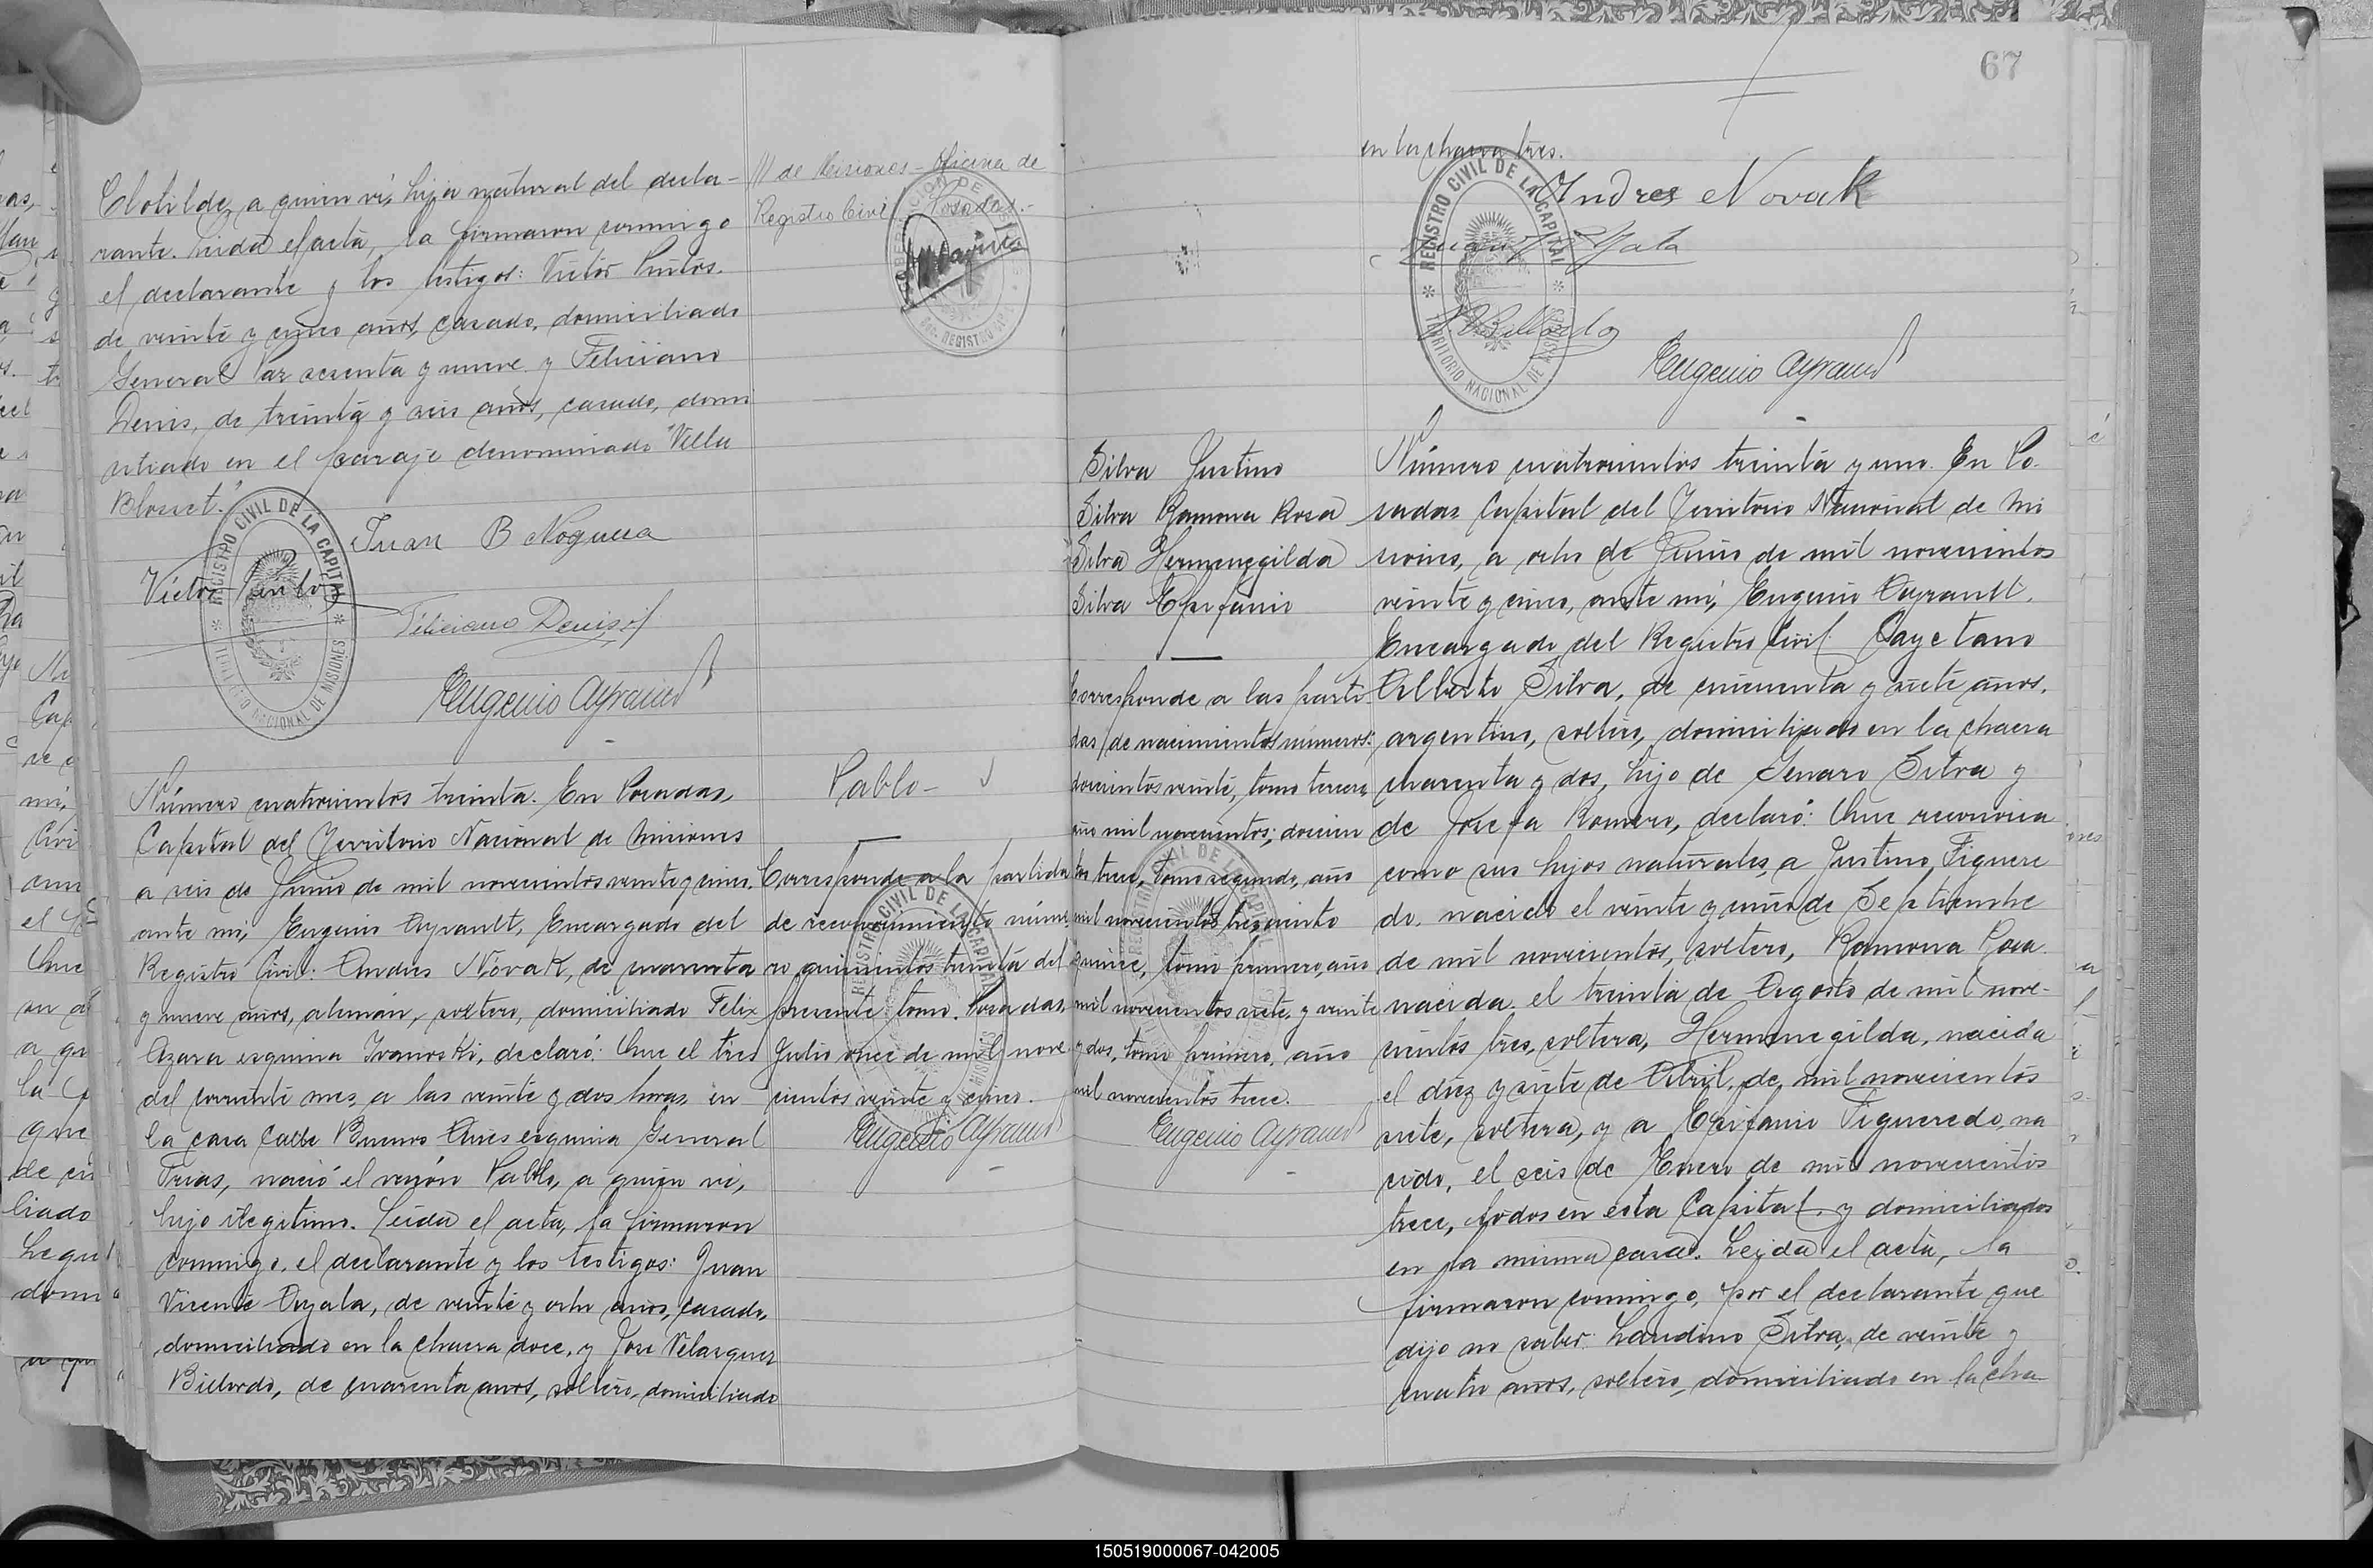 Clotilde, a quien vi, hija natural del decla-
rante. Leida el acta, la firmaron conmigo
el declarante y los testigos: Victor Pintos.
de veinte y cinco años, casado, domiciliado
General Paz sesenta y nueve y Feliciano
Denis, de treinta y seis años, casado, domi
ciliado en el paraje denominado "Villa
Blosset."
Juan B Noguera
Victor Pintos
Feliciano Denis
Eugenio Ayrault
REGISTRO CIVIL DE LA CAPITAL
TERRITORIO NACIONAL DE MISIONES
de Misiones - Oficina de
Registro Civil Posadas.-
Número cuatrocientos treinta. En Posadas,
Capital del Territorio Nacional de Misiones
a seis de Junio de mil novecientos veinte y cinco.
ante mi, Eugenio Ayrault, Encargado del
Registro Civil: Andres Novak, de cuarenta
y nueve años, alemán, soltero, domiciliado Felix
Azara esquina Ivanoski, declaró: Que el tres
del corriente mes, a las veinte y dos horas, en
la casa calle Buenos Aires esquina General
Frias, nació el varón Pablo, a quien vi,
hijo ilegitimo. Leida el acta, la firmaron
conmigo, el declarante y los testigos: Juan
Vicente Ayala, de veinte y ocho años, casado,
domiciliado en la chacra doce, y José Velasquez
de cuarenta años, soltero, domiciliado
Pablo-
Corresponde a la partida
de reconocimiento núme-
ro quinientos treinta del
presente tomo. Posadas,
Julio once de mil nove-
cientos veinte y cinco.
Eugenio Ayrault
67
en la chacra tres.
Andres Novak
Ayala
Eugenio Ayrault
REGISTRO CIVIL DE LA CAPITAL
TERRITORIO NACIONAL DE MISIONES
Silva Justino
Silva Ramona Rosa
Silva Hermenegilda
Silva Epifanio
Corresponde a las parti-
das de nacimientos números:
doscientos veinte, tomo tercero,
año mil novecientos; doscien
tos trece, tomo segundo, año
mil novecientos tres, ciento
quince, tomo primero, año
mil novecientos siete, y veinte
y dos, tomo primero, año
mil novecientos trece.
Eugenio Ayrault
Número cuatrocientos treinta y uno. En Po-
sadas Capital del Territorio Nacional de Mi
siones, a ocho de Junio de mil novecientos
veinte y cinco, ante mi, Eugenio Ayrault,
Encargado del Registro Civil: Cayetano
Alberto Silva, de cincuenta y siete años,
argentino, soltero, domiciliado en la chacra
cuarenta y dos, hijo de Genaro Silva y
de Josefa Romero, declaró: Que reconocia
como sus hijos naturales, a Justino Figuere
do, nacido el veinte y cinco de Septiembre
de mil novecientos, soltero, Ramona Rosa
nacida, el treinta de Agosto de mil nove-
cientos tres, soltera, Hermenegilda, nacida
el diez y siete de Abril, de mil novecientos
siete, soltera, y a Epifanio Figueredo, na
cido, el seis de Enero de mil novecientos
trece, todos en esta Capital y domiciliados
en la misma casa. Leida el acta, la
firmaron conmigo, por el declarante que
dijo no saber: Laudino Silva, de veinte y
cuatro años, soltero, domiciliado en la cha-
150519000067-042005